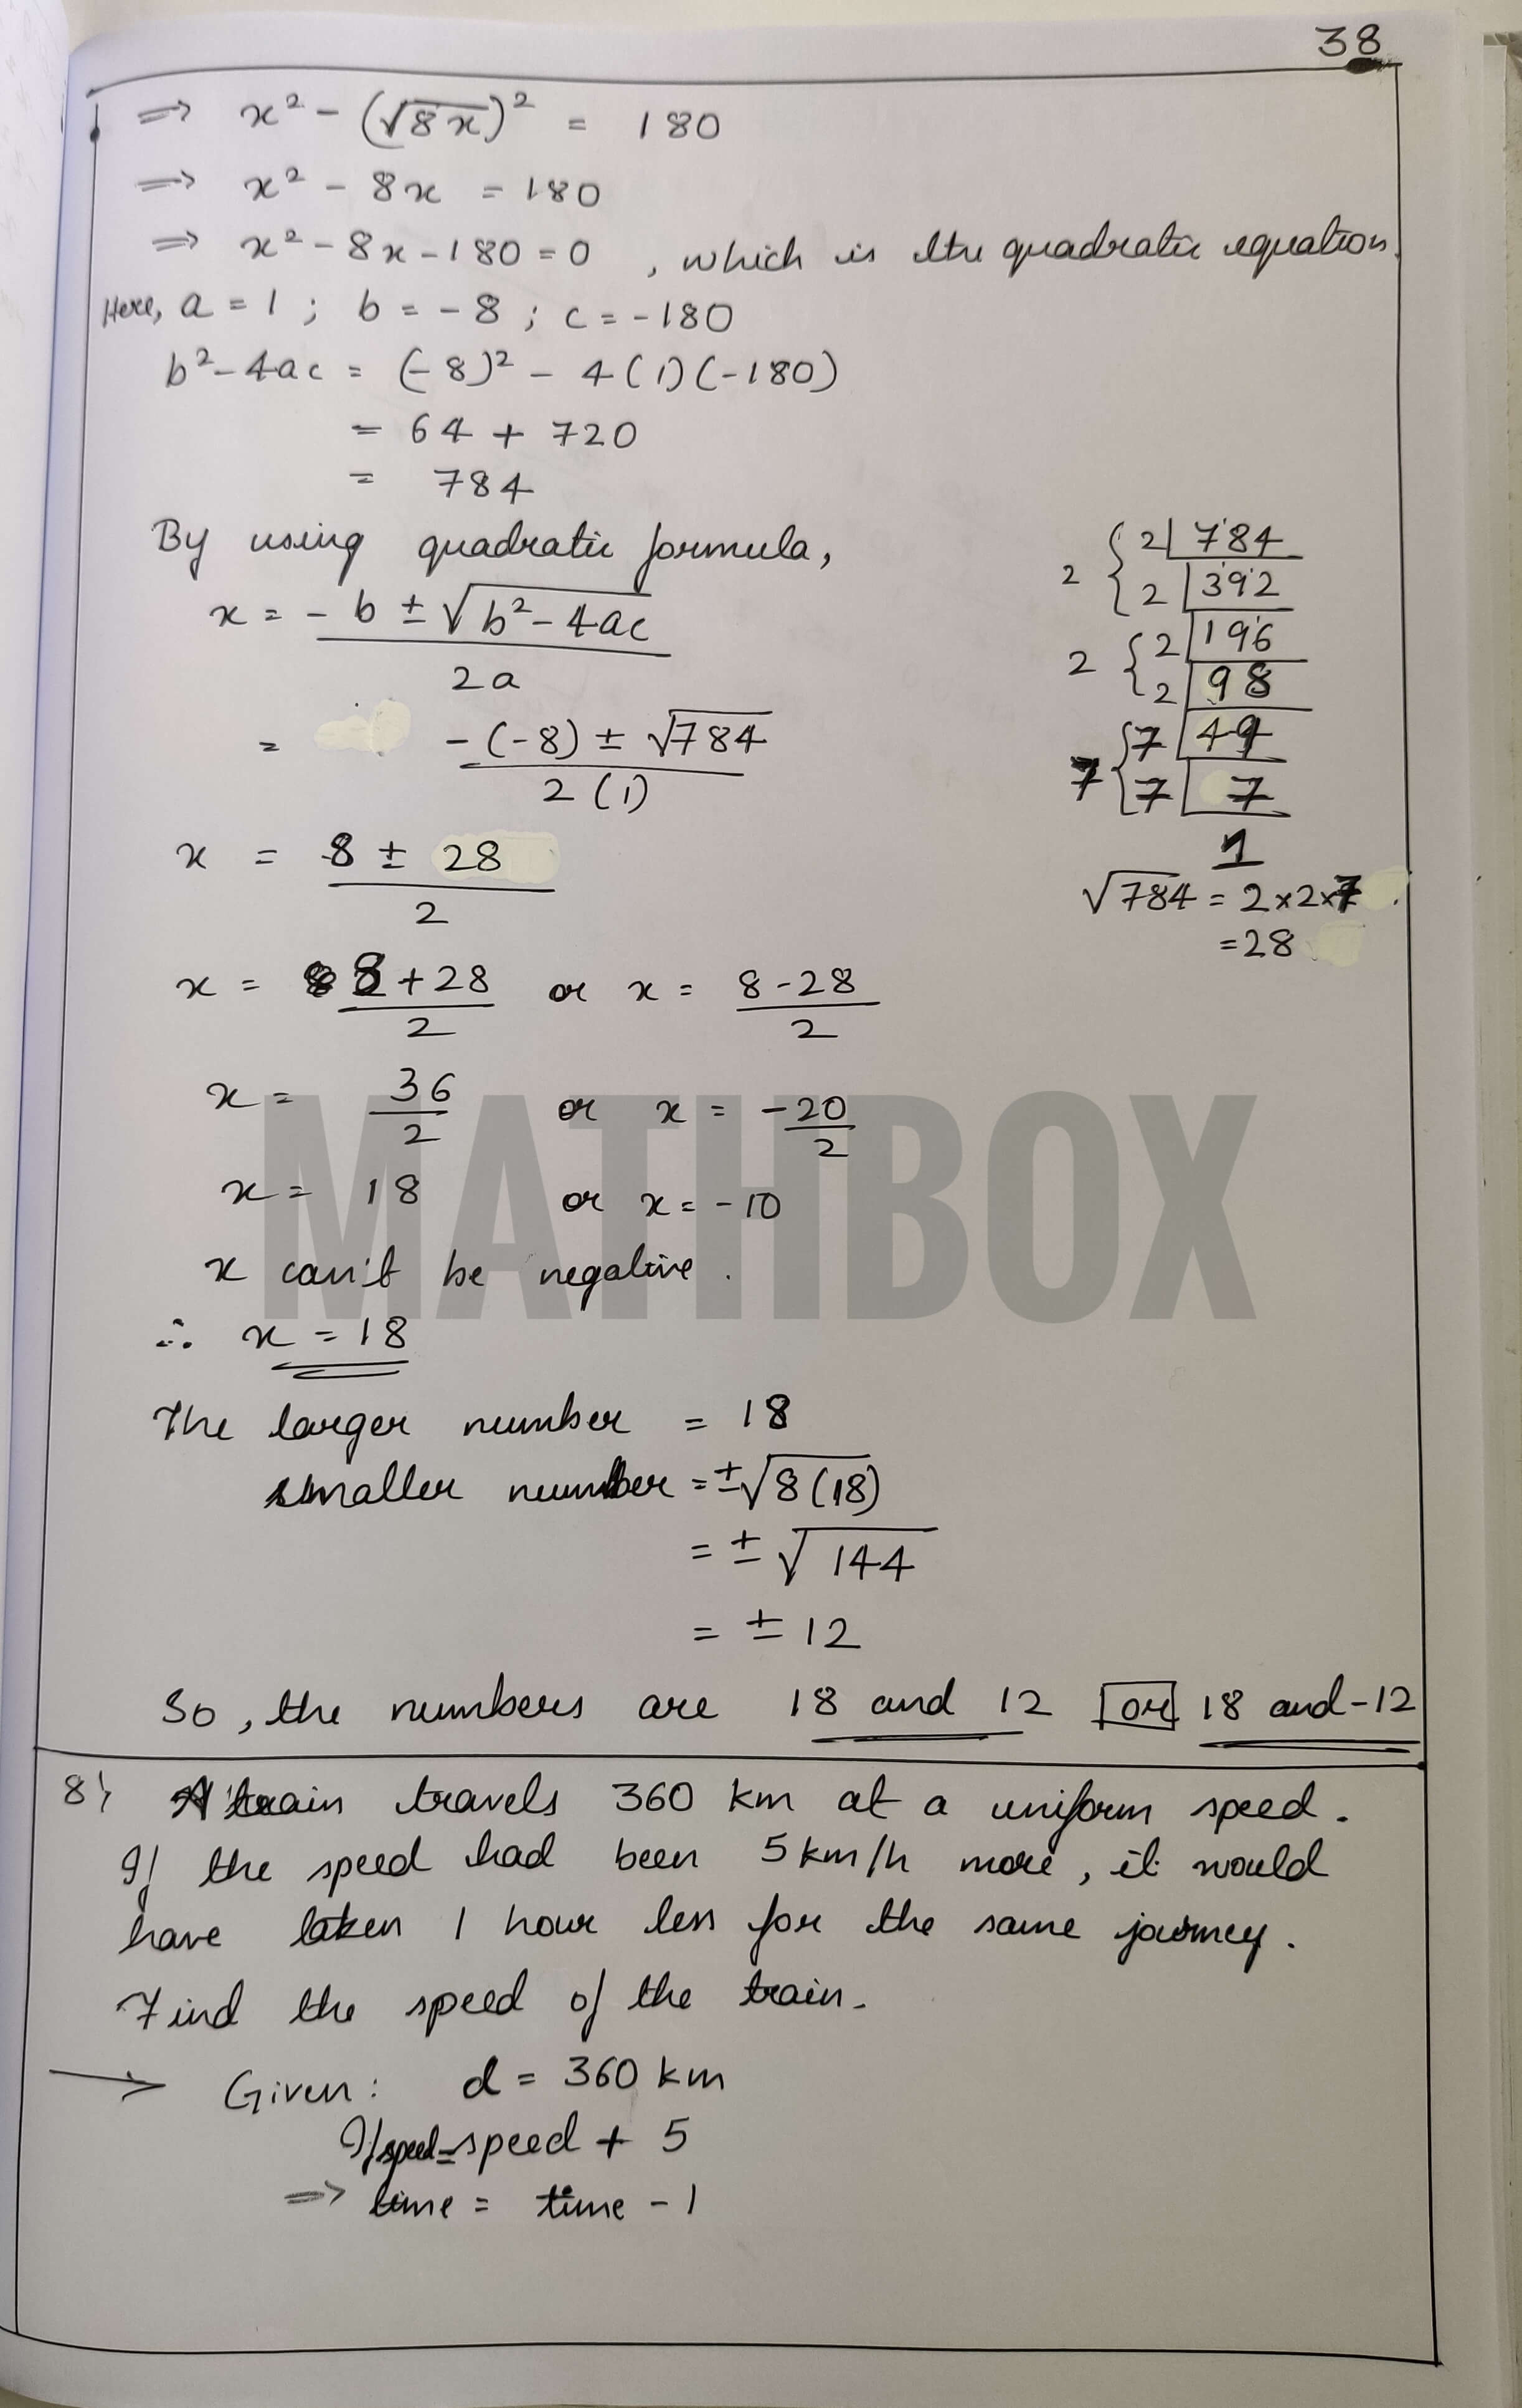 38
⇒ x² - (√8x)² = 180
⇒ x² - 8x = 180
⇒ x² - 8x - 180 = 0 , which is the quadratic equation.
Here, a = 1 ; b = -8 ; c = -180
b² - 4ac = (-8)² - 4(1)(-180)
= 64 + 720
= 784
By using quadratic formula,
x = -b ± √b² - 4ac
2a
= -(-8) ± √784
2(1)
x = 8 ± 28
2
x = 8 + 28 or x = 8 - 28
2 2
x = 36 or x = -20
2 2
x = 18 or x = -10
x can't be negative.
∴ x = 18
2 { 2 | 784
2 | 392
2 { 2 | 196
2 | 98
7 { 7 | 49
7 | 7
1
√784 = 2×2×7
= 28
MATHBOX
The larger number = 18
smaller number = ±√8(18)
= ± √144
= ± 12
So, the numbers are 18 and 12 or 18 and -12
8) A train travels 360 km at a uniform speed.
If the speed had been 5 km/h more, it would
have taken 1 hour less for the same journey.
Find the speed of the train.
→ Given: d = 360 km
If speed = speed + 5
⇒ time = time - 1